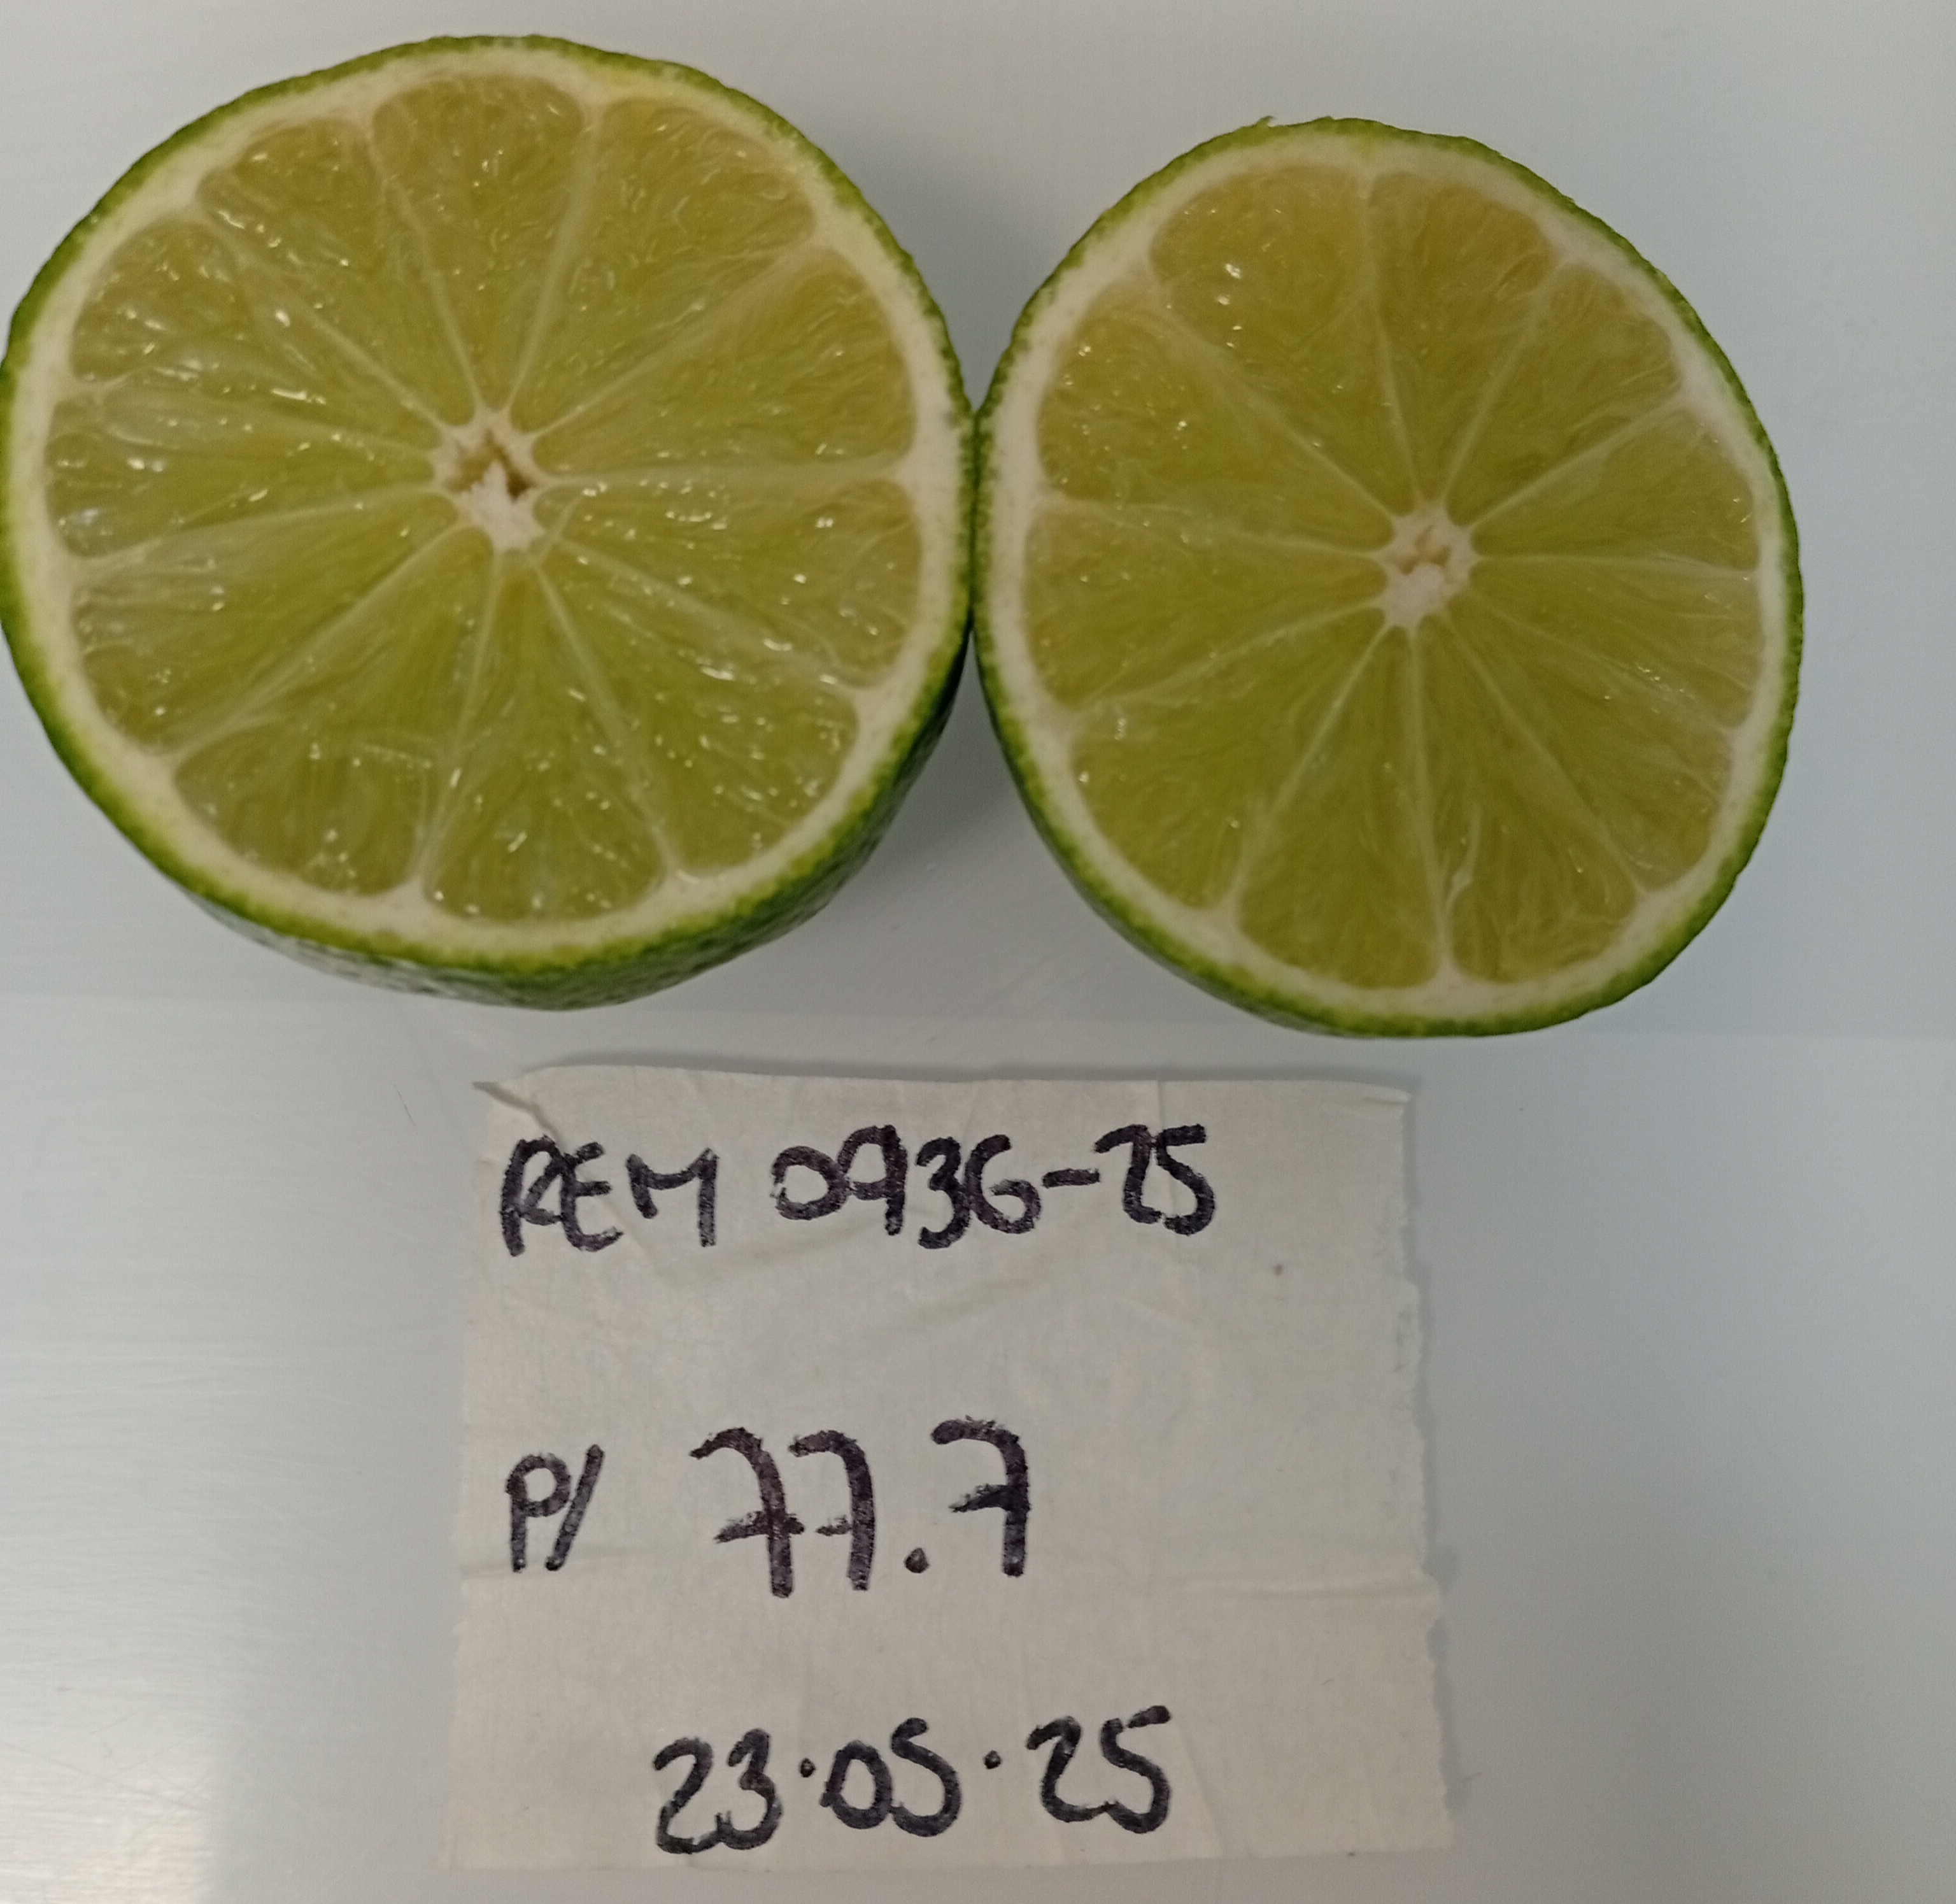 REM 0936-25
P/ 77.7
23.05.25